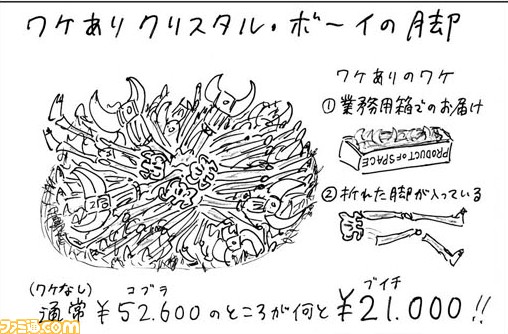 ワケあり クリスタル・ボーイの脚
ワケありのワケ
①業務用箱でのお届け
PRODUCT OF SPACE
②折れた脚が入っている
(ワケなし)
コブラ
ブイチ
通常¥52.600のところが何と¥21.000!!
ファミ通.com